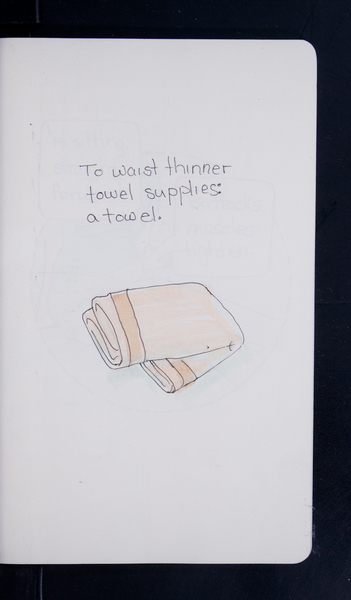 To waist thinner
towel supplies:
a towel.